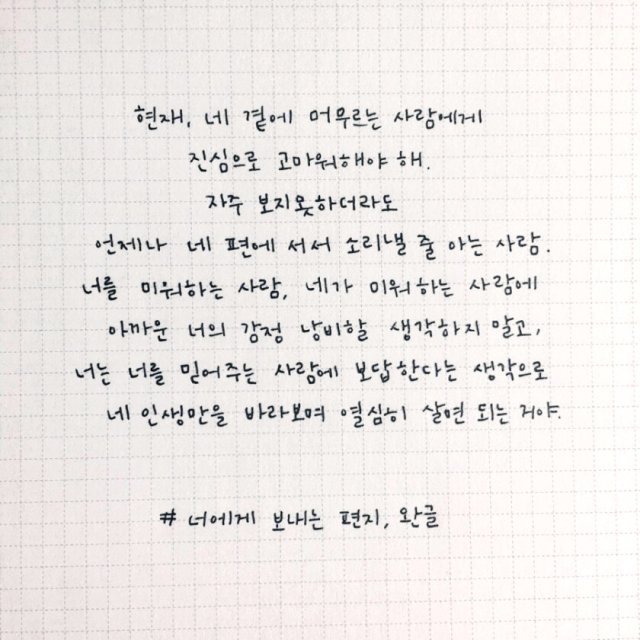 현재, 네 곁에 머무르는 사람에게
진심으로 고마워해야 해.
자주 보지못하더라도
언제나 네 편에 서서 소리낼 줄 아는 사람.
너를 미워하는 사람, 네가 미워하는 사람에
아까운 너의 감정 낭비할 생각하지 말고,
너는 너를 믿어주는 사람에 보답한다는 생각으로
네 인생만을 바라보며 열심히 살면 되는 거야.
# 너에게 보내는 편지, 완글